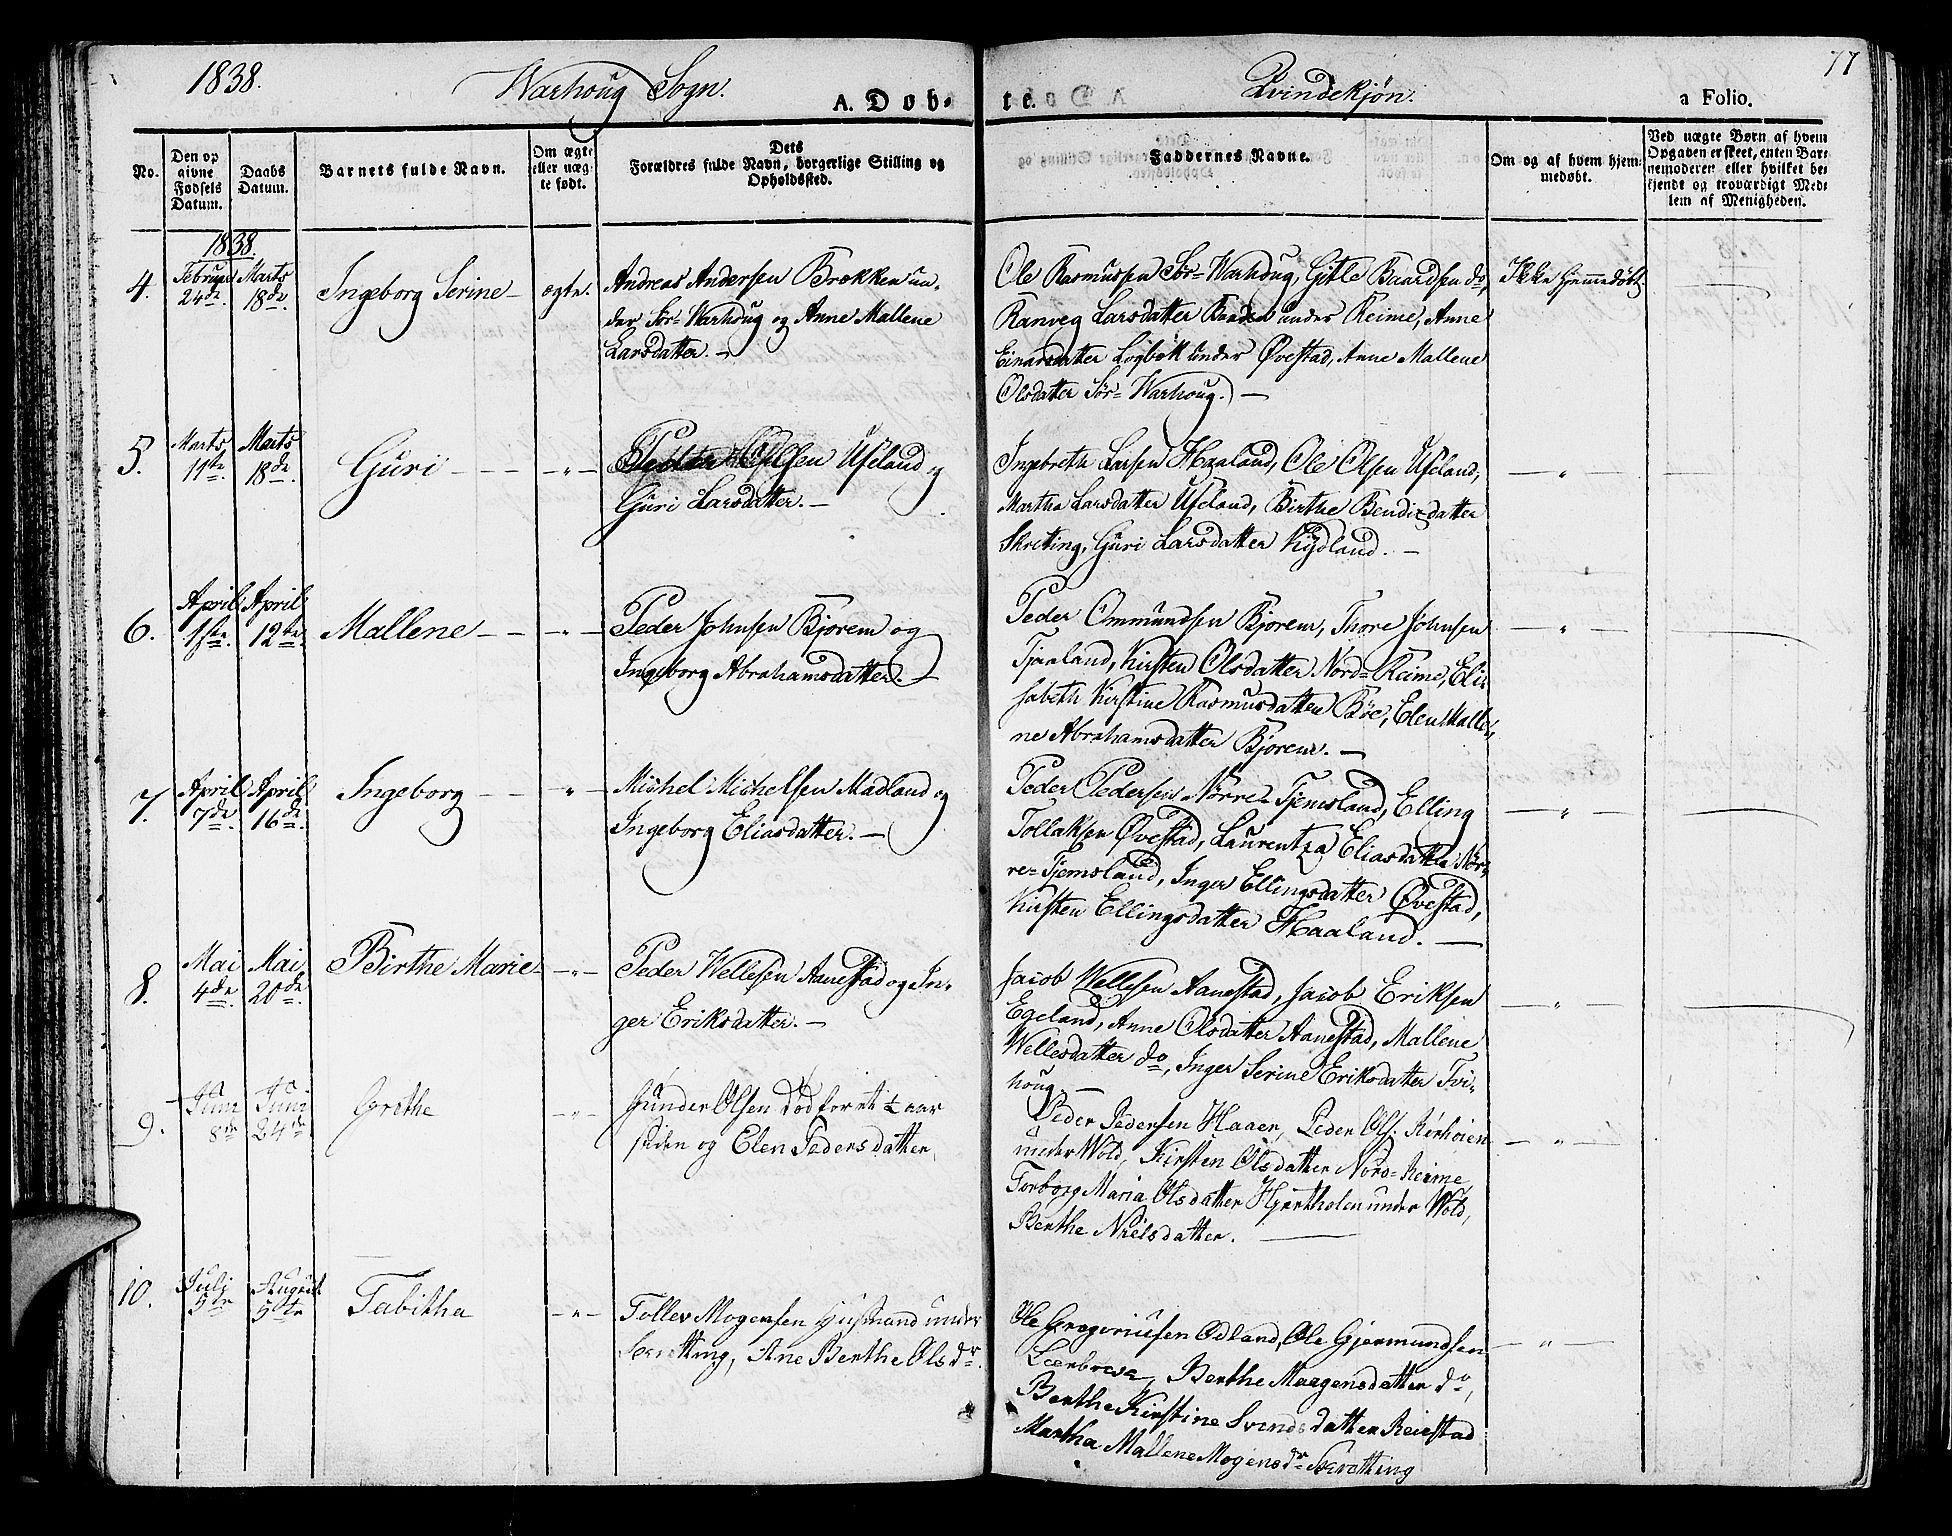 1838.
Warhoug Sogn.
A. Döb-
te.
Qvindekjøn.
77
a Folio.
No.
Den op
givne
Fødsels
Datum.
Daabs
Datum.
Barnets fulde Navn.
Om ægte
eller uæg-
te født.
Dets
Forældres fulde Navn, borgerlige Stilling og
Opholdssted.
Faddernes Navne.
Om og af hvem hjem-
medøbt.
Ved uægte Børn af hvem
Opgaven er skeet, enten Bar-
nemoderen eller hvilket be-
kjendt og troværdigt Med-
lem af Menigheden.
1838.
4.
Februar
24de.
Marts
18de.
Ingeborg Serine
ægte.
Andreas Andersen Brækken un-
der Sör-Warhoug og Anne Mallene
Larsdatter. —
Ole Rasmussen Sör-Warhoug, Gitle Baardsen do,
Ranveg Larsdatter under Reime, Anne
Einarsdatter Logbøk under Øvestad, Anne Mallene
Olsdatter Sör-Warhoug. —
Ikke hjemmedøbt.
5.
Marts
11te.
Marts
18de.
Guri
— " —
Olsen Ueland og
Guri Larsdatter. —
Ingebreth Larsen Haaland, Ole Olsen Ueland,
Martha Larsdatter Ueland, Birthe Bendixdatter
Skreting, Guri Larsdatter Kydland. —
— " —
6.
April
1ste.
April
12te.
Mallene
— " —
Peder Johnsen Bjorem og
Ingeborg Abrahamsdatter. —
Peder Ommundsen Bjorem, Thore Johnsen
Tjaaland, Kirsten Olsdatter Nord-Reime, Eli-
sabeth Kirstine Rasmusdatter Böe, Elen Malle-
ne Abrahamsdatter Bjorem. —
— " —
7.
April
7de.
April
16de.
Ingeborg
— " —
Michel Michelsen Madland og
Ingeborg Eliasdatter. —
Peder Pedersen Nörre-Tjemsland, Elling
Tollaksen Øvestad, Laurentza Eliasdatter Nör-
re-Tjemsland, Inger Ellingsdatter Øvestad,
Kirsten Ellingsdatter Haaland. —
— " —
8.
Mai
4de.
Mai
20de.
Birthe Marie
— " —
Peder Wellesen Aanestad og In-
ger Eriksdatter. —
Jacob Wellesen Aanestad, Jacob Eriksen
Egeland, Anne Olsdatter Aanestad, Mallene
Wellesdatter do, Inger Serine Eriksdatter Tvi-
houg. —
— " —
9.
Juni
8de
Juni
24de
Grethe
— " —
Gunder Olsen död for et ½ aar
siden og Elen Pedersdatter,
Peder Pedersen Haaer, Peder Ols:
under Wold, Kirsten Olsdatter Nord-Reime,
Torborg Maria Olsdatter under Wold,
Berthe Nielsdatter.
— " —
10.
Juli
5te
August
5te
Tabitha
— " —
Tollev Mogensen Husmand under
Ane Berthe Olsdr.
Ole Gregoriusen Ødland, Ole Gjermundsen
Leerbrek, Berthe Maagensdatter do,
Berthe Kirstine Svendsdatter Reiestad
Martha Mallene Mogensdr
— " —